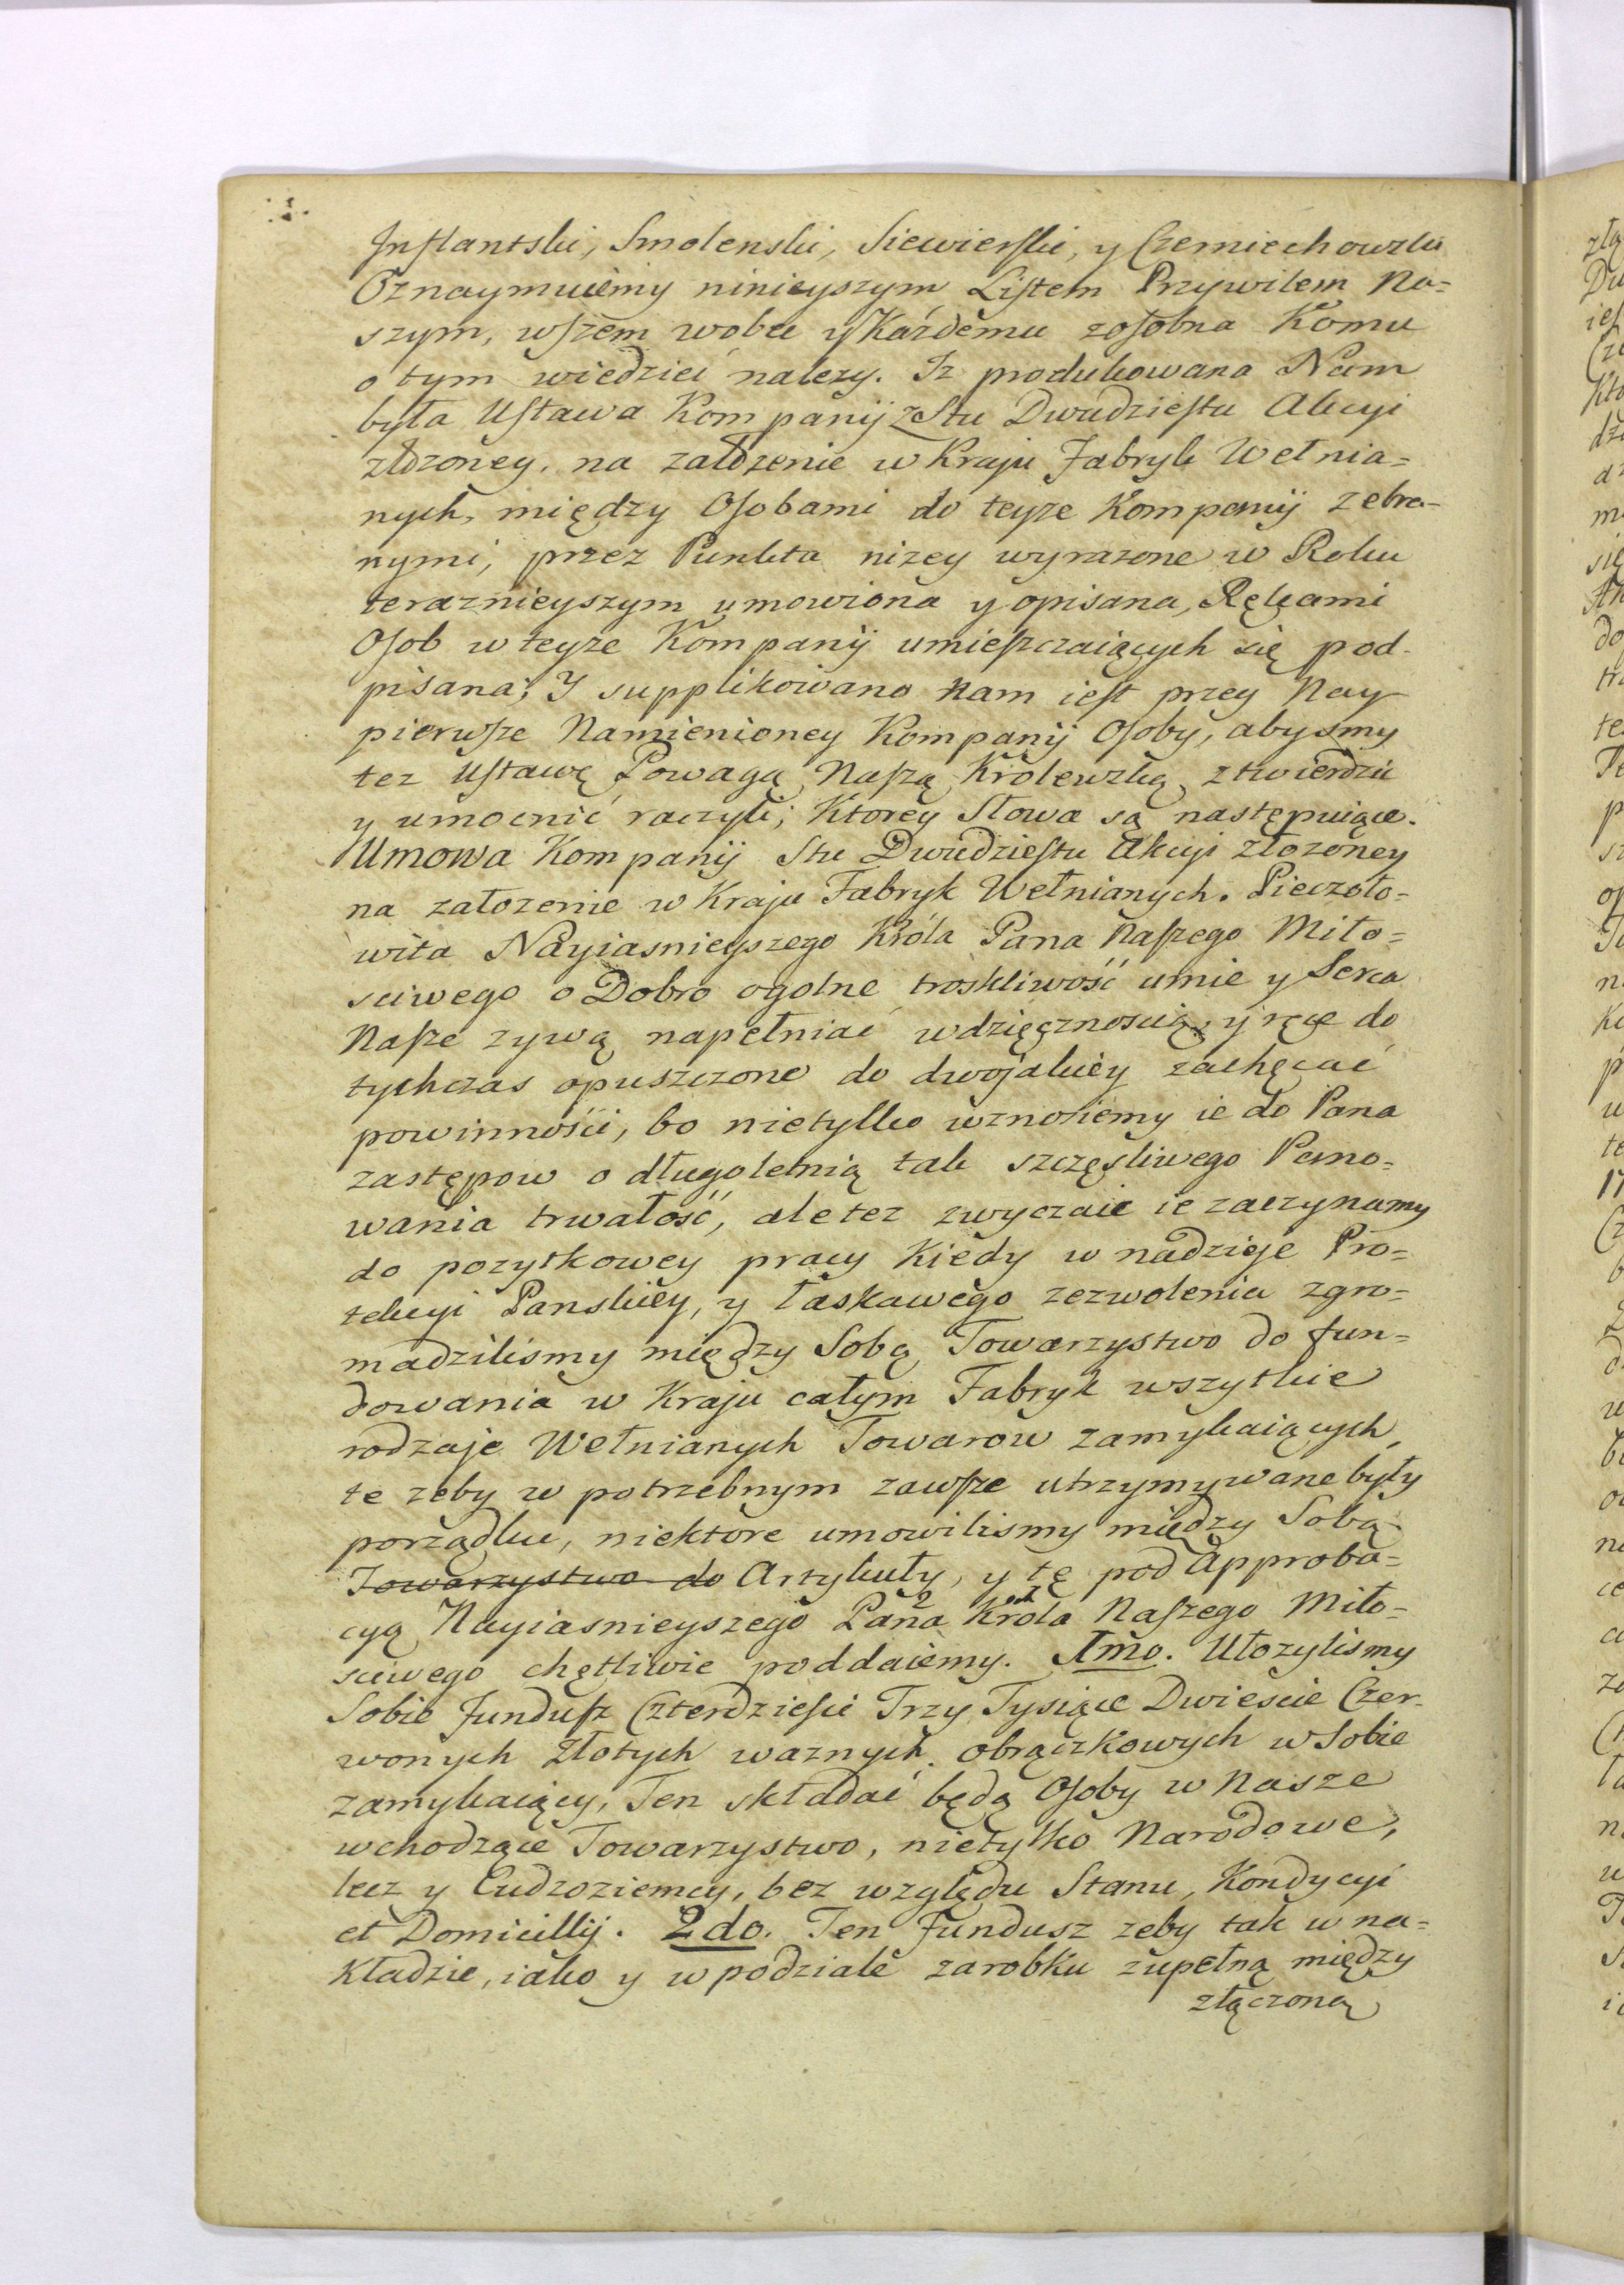 Inflantski, Smolenski, Siewierski, y Czerniechowzki
Oznaymuiemy ninieyszym Listem Przywilem Na=
szym, wszem wobec y Każdemu zosobna Komu
o tym wiedzieć nalezy. Iz produkowana Nam
była Ustawa Kompanij z Stu Dwudziestu Akcyi
złozoney, na załozenie w Kraju Fabryk Wełnia=
nych, między Osobami do teyze Kompanij zebra=
nymi, przez Punkta nizey wyrazone w Roku
teraznieyszym umowiona y opisana, Rękami
Osob w teyze Kompanij umieszczaiących się pod-
pisana; I supplikowano nam iest przey Nay
pierwsze Namienioney Kompanij Osoby, abysmy
tez Ustawę Powagą Naszą Krolewzką ztwierdzić
y umocnić raczyli; Ktorey Słowa są następuiące.
Umowa Kompanij Stu Dwudziestu Akcyi złozoney
na załozenie w Kraju Fabryk Wełnianych. Pieczoło=
wita Nayiasnieyszego Króla Pana Naszego Miło=
sciwego o Dobro ogolne troskliwość umie y Serca
Nasze zywą napełniać wdzięcznoscią, y ręce do
tychczas opuszczone do dwojakiey zachęcać
powinności, bo nietylko wznosiemy ie do Pana
zastępow o długoletnią tak szczęsliwego Pano=
wania trwałość, ale tez zwyczaie ie zaczynamy
do pozytkowey pracy Kiedy w nadzieje Pro=
tekcyi Panskiey, y łaskawego zezwolenia zgro=
madzilismy między Sobą Towarzystwo do fun=
dowania w Kraju całym Fabryk wszytkie
rodzaje Wełnianych Towarow zamykaiących
te zeby w potrzebnym zawsze utrzymywane były
porządku, niektore umowilismy między Sobą
Towarzystwo do Artykuły, y tę pod Approba=
cyą Nayiasnieyszego Pana Krola Naszego Miło=
sciwego chętliwie poddaiemy. Imo. Ułozylismy
Sobie Fundusz Czterdziesci Trzy Tysiące Dwiescie Czer-
wonych Złotych waznych obrączkowych w Sobie
zamykaiący, Ten składać będą Osoby w Nasze
wchodzące Towarzystwo, nietylko Narodowe,
lecz y Cudzoziemcy, bez względu Stanu, Kondycyi
et Domicillij. 2do. Ten Fundusz zeby tak w na=
kładzie, iako y w podziale zarobku zupełną między
złączoną